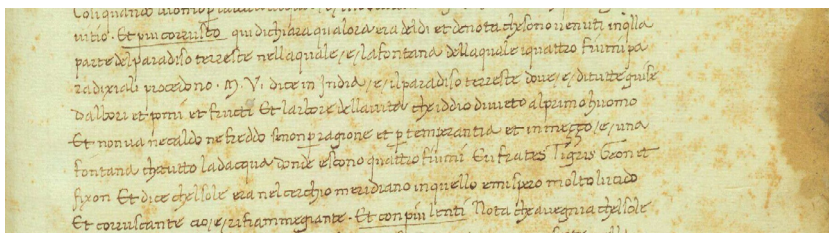 uitio. Et piu corrusco qui dichiara qualora era del di et denota che sono uenuti in qlla
parte del paradiso terreste nella quale /e/ la fontana della quale i quattro fiumi pa
radixiali procedono. M. V. dice in India /e/ il paradiso terreste doue /e/ di tutte guise
d albori et pomi et fructi Et larbore della uita che iddio diuieto al primo huomo
Et non ua ne caldo ne freddo se non p ragione et p temperantia et in mezzo /e/ una
fontana che tutto lad acqua donde escono quattro fiumi Eufrates Tigris Geon et
fixon Et dice chel sole era nel cerchio meridiano in quello emispero molto lucido
Et corruscante cio /e/ rifiammegiante. Et con piu lenti Nota che auegnia chel sole